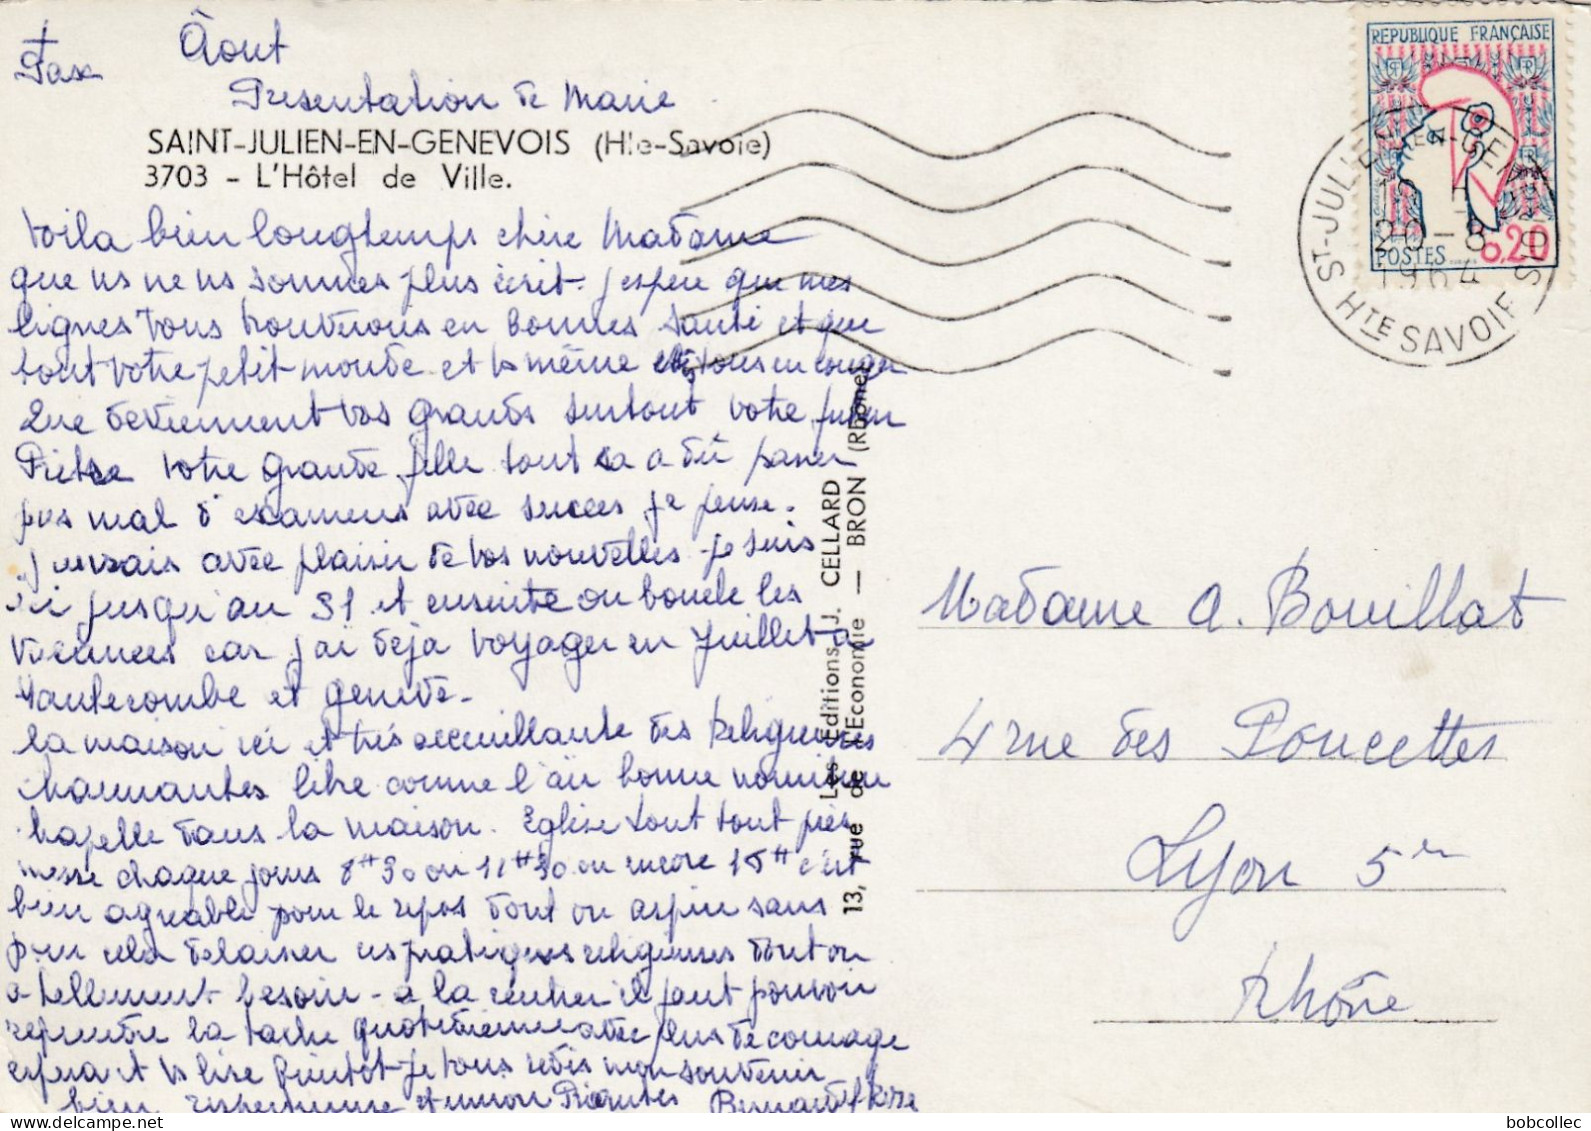 Pax
Âout
Presentation de Marie
SAINT-JULIEN-EN-GENEVOIS (Hte-Savoie)
3703 - L'Hôtel de Ville.
Voila bien longtemps chère Madame
que ns ne ns sommes plus écrit. j'espère que mes
lignes vous trouverons en bonnes santé et que
tout votre petit monde et vs même êtes tous en
Que deviennent vos grands surtout votre
votre grande fille tout sa a dû passer
pas mal d'examens avec succes je pense.
avec plaisir de vos nouvelles je suis
ici jusqu'au 31 et ensuite on boucle les
vacances car j'ai deja voyager en Juillet à
Hautecombe et geneve.
la maison ici et très accueillante des Religieuses
charmantes libre comme l'air bonne nourriture
chapelle dans la maison. Eglise tout tout près
messe chaque jours 8H30 ou 11H30 ou encore 18H c'est
bien agréable pour le repos dont on aspire sans
pour cela délaisser ses pratiques religieuses dont on
a tellement besoin - a la rentrer il faut pouvoir
reprendre la tache quotidienne avec plus de courage
espera et vs lire bientôt - je vous redis mon souvenir
bien respectueuse et union Priantes
REPUBLIQUE FRANÇAISE
POSTES
0,20
ST-JULIEN-EN-GENEVOIS
20-8
1964
HTE SAVOIE
Les Editions J. CELLARD
13, rue de l'Economie — BRON (Rhône)
Madame A. Bouillat
4 rue des Poucettes
Lyon 5er
Rhône
bobcollec